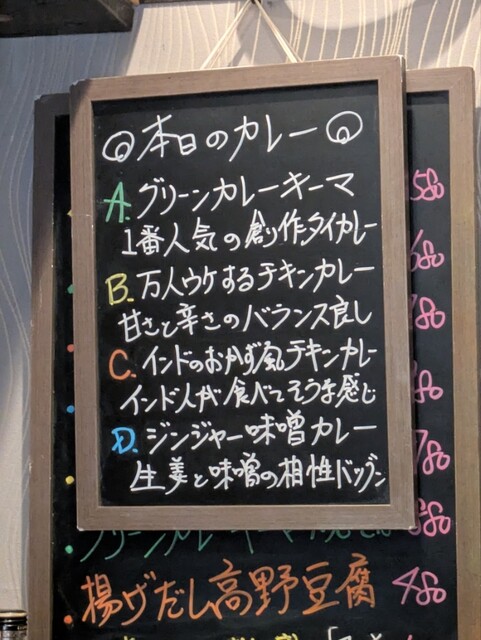 本日のカレー
A. グリーンカレーキーマ
1番人気の創作タイカレー
B. 万人ウケするチキンカレー
甘さと辛さのバランス良し
C. インドのおかず風チキンカレー
インド人が食べてそうな感じ
D. ジンジャー味噌カレー
生姜と味噌の相性バツグン
580
680
780
揚げだし高野豆腐 480